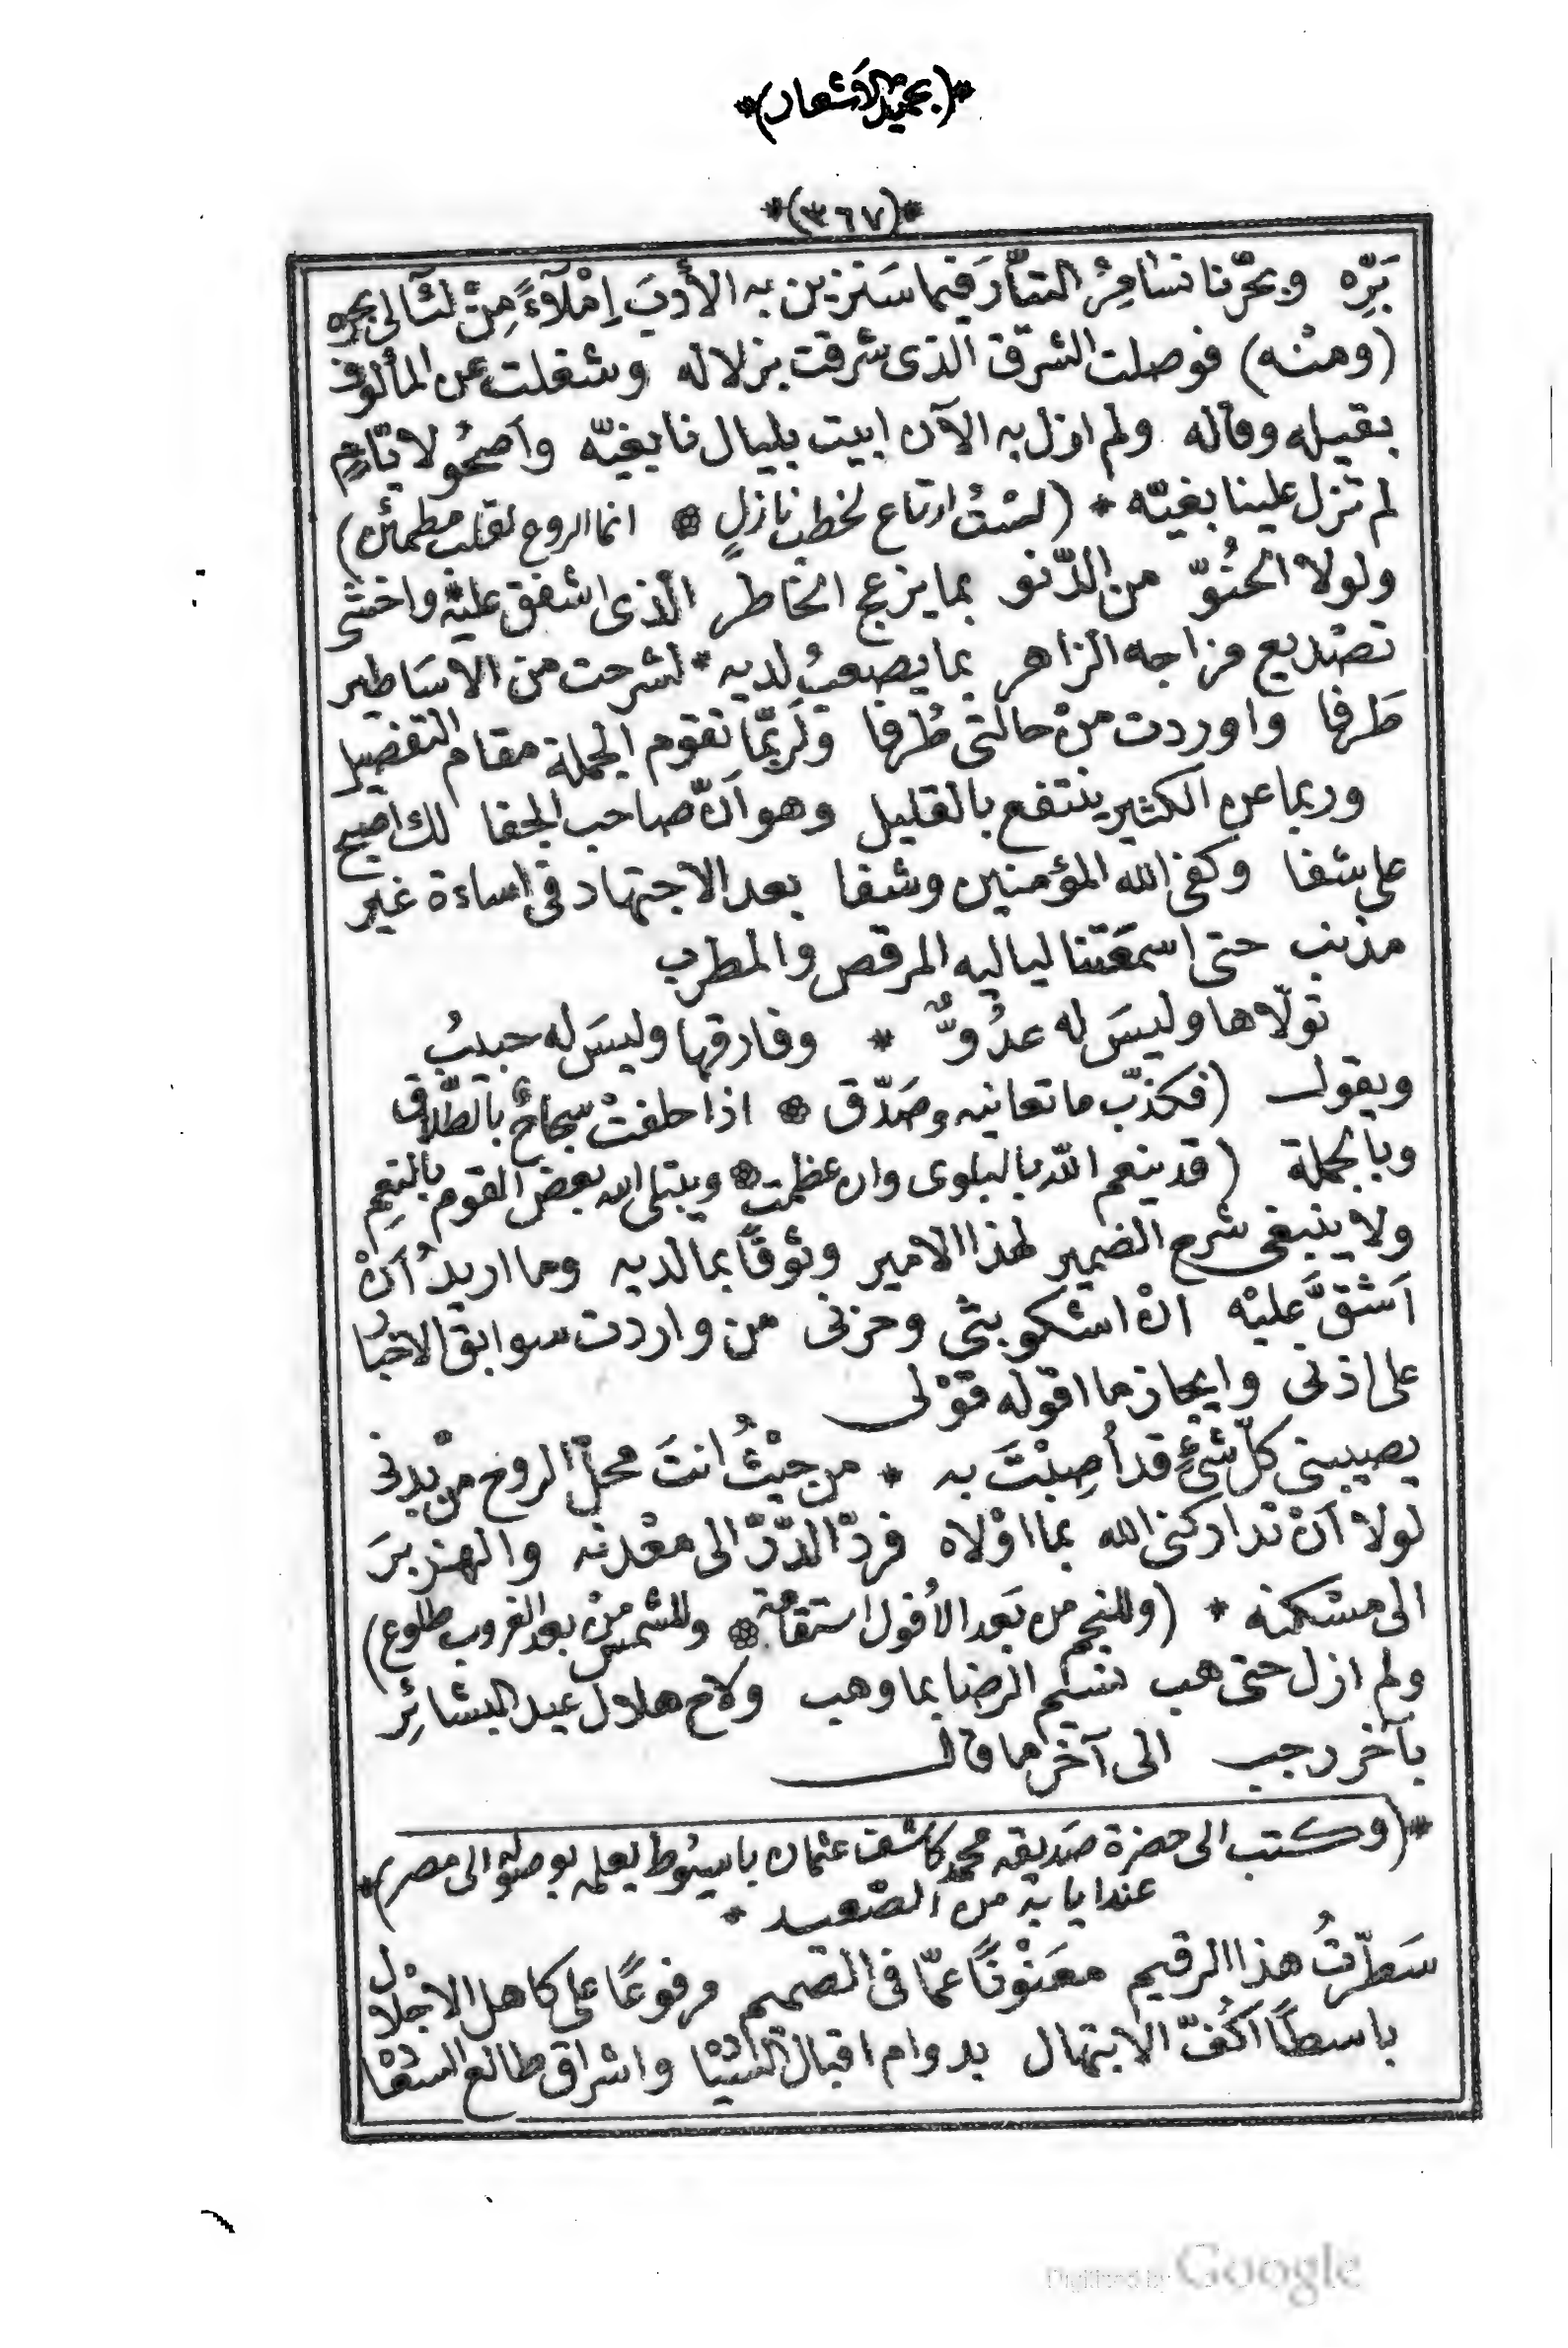 *(بحميد الأشعار)*
*(٣٦٧)*
بَرِّه وبحّرنا نسافِرُ التيّار فيما سَنزين به الأديَبَ إمْلآءً مِنْ لئالى بحره
(ومنْه) فوصلت الشرق الذى شرقت بزلاله وشغلت عن المألوف
بقيله وقاله ولم ازل به الآن ابيت بليال نابغيّه واَصْحُو لايّام
لم تزل علينا بغيّه * (لسْتُ ارتاع لخطب نازلٍ ❁ انما الروع لقلب مطمئن)
ولولا الحُنُوّ من الدّنو بما يزعج الخاطر الذى اشفق عليْه واخشى
تصْديع مزاجه الزاهر بما يصعبُ لديه * لشرحت من الاسَاطير
طَرفا واوردت منْ حالتى طُرفا ولَربّما تقوم الجملة مقام التفصيل
وربما عن الكثير ينتفع بالقليل وهو اَنّ صاحب الجفا لك اصبح
على شفا وكفى الله المؤمنين وشفا بعد الاجتهاد فى اساءة غير
مذنب حتى اسمعَتنا لياليه المرقص والمطرب
تولّاها وليسَ له عدُوٌّ * وفارقها وليسَ له حبيبُ
ويقول (فكذّب ما تعانيه وصَدّق ❁ اذا حلفتْ سجاحُ بالطّلاق
وبالجملة (قد ينعم الله بالبلوى وان عظمت ❁ ويبتلى الله بعض القوم بالنعِم
ولا ينبغى شرح الضمير لهذا الامير وثوقًا بما لديه وما اريدُ اَنْ
اَشقّ عليْه انْ اشكو بثى وحزنى من واردت سوابق الاخبار
على اذنى وايجاز ما اقوله قوْلى
يصيبنى كلّ شئٍ قد أُصِبْتَ به * من حيْثُ انتَ محلّ الروح منْ بدنى
لولا اَنْ تداركنى الله بما اوْلاه فردّ الدّرّ الى معْدنه والهزبرَ
الى مسْكنه * (وللنجم من بَعد الأفول استقامة ❁ وللشمس منْ بعد الغروب طلوع)
ولم ازل حتى هب نسيم الرضا بما وهب ولاح هلال عيد البشائِر
بآخر رجب الى آخر ما قال
*(وكتب الى حضرة صَديقه محمد كاشف عثمان باسيُوط يعلمه بوصوله الى مصر)*
عند ايابه من الصّعيد *
سَطّرتُ هذا الرقيم معَنْوَنًا عمّا فى الصّميم مرفوعًا على كاهل الاجْلال
باسطًا اَكُفّ الابتهال بدوام اقبال السّيادْه واشراق طالع السّعادْه